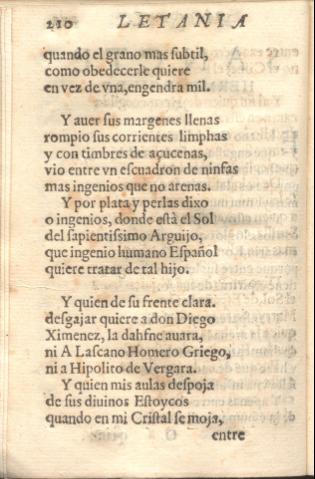 210 LETANIA
quando el grano mas subtil,
como obedecerle quiere
en vez de vna,engendra mil.
Y auer sus margenes llenas
rompio sus corrientes limphas
y con timbres de açucenas,
vio entre vn escuadron de ninfas
mas ingenios que no arenas.
Y por plata y perlas dixo
o ingenios, donde està el Sol
del sapientissimo Arguijo,
que ingenio humano Español
quiere tratar de tal hijo.
Y quien de su frente clara.
desgajar quiere a don Diego
Ximenez, la dahfne auara,
ni A Lascano Homero Griego,
ni a Hipolito de Vergara.
Y quien mis aulas despoja
de sus diuinos Estoycos
quando en mi Cristal se moja,
entre